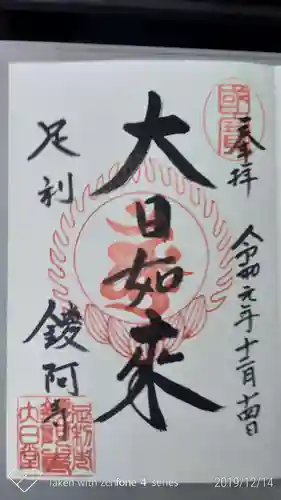 奉拝
令和元年十二月十四日
大日如來
足利
鑁阿寺
國寶
Taken with zenfone 4 series
2019/12/14